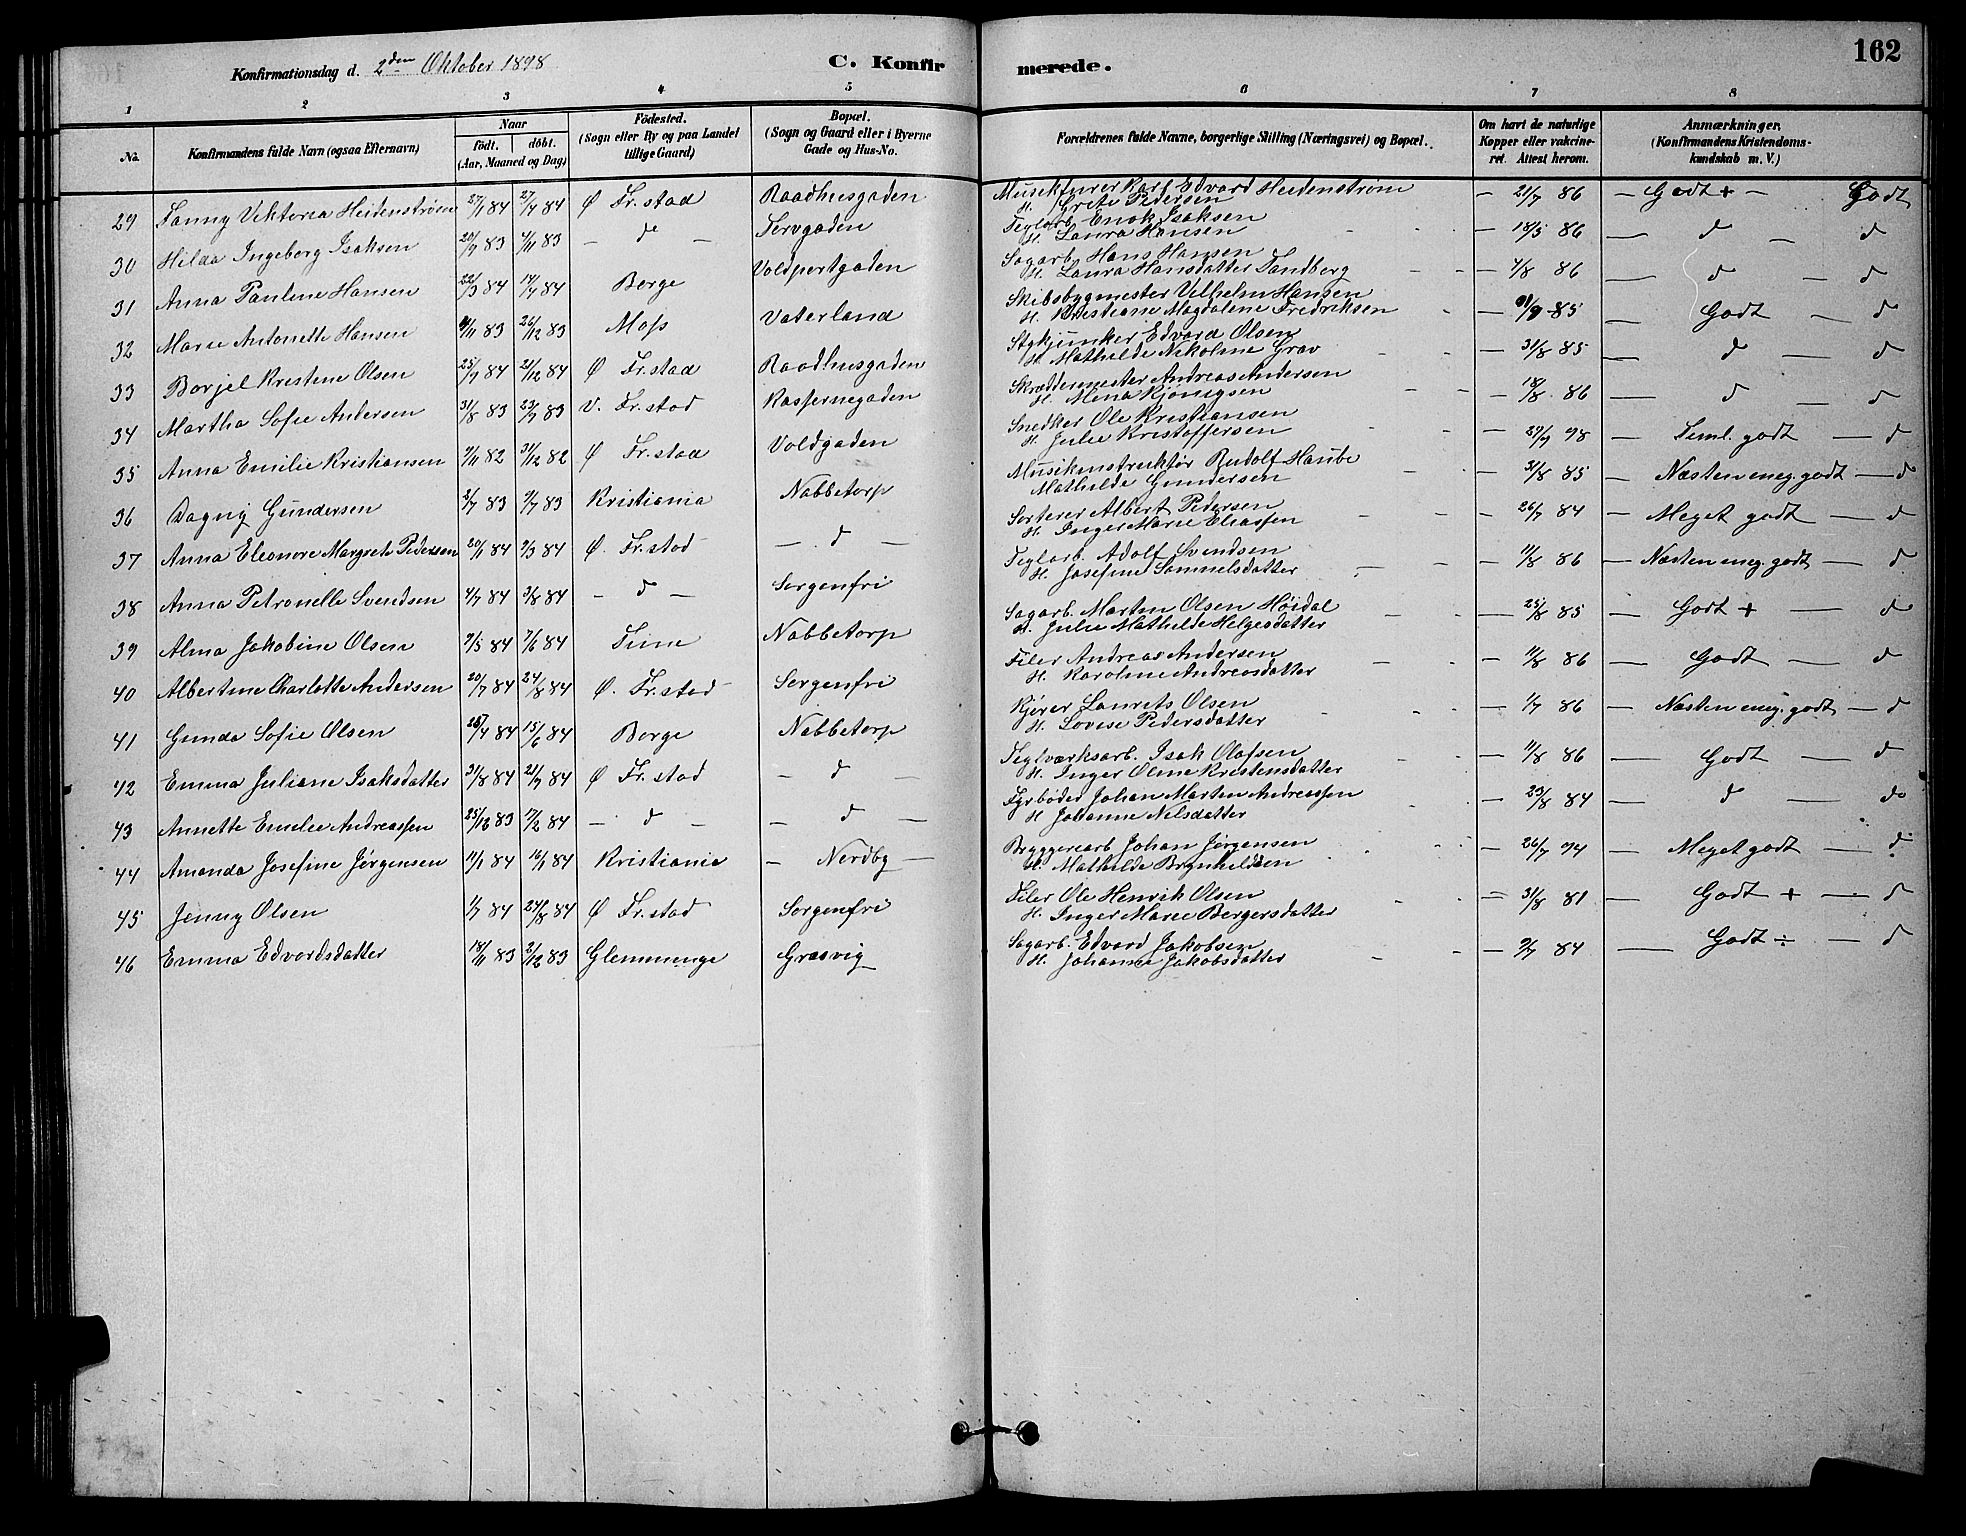 162
Konfirmationsdag d. 2den Oktober 1898 C. Konfirmerede.
1 2 3 4 5 6 7 8
No. Konfirmandens fulde Navn (ogsaa Efternavn) Naar födt. döbt. (Aar, Maaned og Dag) Födested. (Sogn eller By og paa Landet tillige Gaard) Bopæl. (Sogn og Gaard eller i Byerne Gade og Hus-No. Forældrenes fulde Navne, borgerlige Stilling (Næringsvei) og Bopæl. Om havt de naturlige Kopper eller vakcineret. Attest herom. Anmærkninger. (Konfirmandens Kristendomskundskab m. V.)
29 Fanny Viktoria Heidenstrøm 27/1 84 27/4 84 Ø Fr.stad Raadhusgaden Karl Edvard Heidenstrøm H. Grete Pedersen — 21/7 86 — Godt + — Godt
30 Hilda Ingeborg Isaksen 20/9 83 4/11 83 — d — Torvgaden Teglarb. Enok Isaksen H. Laura Hansen — 18/5 86 — d — d
31 Anna Pauline Hansen 22/3 84 14/4 84 Borge Voldportgaden Sagarb. Hans Hansen H. Laura Hansdatter Tandberg — 4/8 86 — d — d
32 Marie Antonette Hansen 26/12 83 Moss Vaterland Skibsbygmester Vilhelm Hansen H. Kristiane Magdalene Fredriksen — 85 — Godt — d
33 Borjel Kristine Olsen 25/9 84 21/12 84 Ø Fr.stad Raadhusgaden Stykjunker Edvard Olsen H. Mathilde Nikoline Grav — 31/8 85 — d — d
34 Martha Sofie Andersen 31/8 83 23/9 83 V. Fr.stad Kasernegaden Skræddermester Andreas Andersen H. Mina Kjönigsen — 18/8 86 — d — d
35 Anna Emilie Kristiansen 9/11 82 31/12 82 Ø Fr.stad Voldgaden Snedker Ole Kristiansen H. Julie Kristoffersen — 29/9 98 — Teml. godt — d
36 Dagny Gundersen 2/7 83 9/7 83 Kristiania Nabbetorp Musikinstruktör Rudolf Haube Mathilde Gundersen — 31/8 85 — Næsten meg. godt — d
37 Anna Eleonore Margrete Pedersen 20/1 84 9/3 84 Ø. Fr.stad — d — Sorterer Albert Pedersen H. Inger Marie Eliassen — 26/7 84 — Meget godt — d
38 Anna Petronelle Svendsen 4/7 84 3/8 84 — d — Sorgenfri Teglarb. Adolf Svendsen H. Josefine Samuelsdatter — 11/8 86 — Næsten meg. godt — d
39 Alma Jakobine Olsen 9/5 84 7/6 84 Tune Nabbetorp Sagarb. Martin Olsen Høidal H. Julie Mathilde Helgesdatter — 25/8 85 — Godt + — d
40 Albertine Charlotte Andersen 20/7 84 24/8 84 Ø. Fr.stad Sorgenfri Filer Andreas Andersen H. Karoline Andreasdatter — 11/8 86 — Godt — d
41 Gunda Sofie Olsen 15/6 84 Borge Nabbetorp Kjører Laurets Olsen H. Lovise Pedersdatter — 1/7 86 — Næsten meg. godt — d
42 Emma Juliane Isaksdatter 31/8 84 21/9 84 Ø Fr.stad — d — Teglværksarb. Isak Olafsen H. Inger Oline Kristensdatter — 11/8 86 — Godt — d
43 Annette Emilie Andreassen 25/12 83 17/2 84 — d — — d — Fyrbøder Johan Martin Andreassen H. Johanne Nilsdatter — 23/8 84 — d — do
44 Amanda Josefine Jørgensen 11/1 84 16/1 84 Kristiania — Nordby — Bryggeriarb Johan Jørgensen H. Mathilde Brynhildsen — 26/7 94 — Meget godt — d
45 Jenny Olsen 1/7 84 24/8 84 Ø Fr.stad Sorgenfri Filer Ole Henrik Olsen H. Inger Marie Bergersdatter — 31/8 81 — Godt + — d
46 Emma Edvardsdatter 18/11 83 2/12 83 Glemminge Gresvig Sagarb. Edvard Jakobsen H. Johanne Jakobsdatter — 9/7 84 — Godt ÷ — d